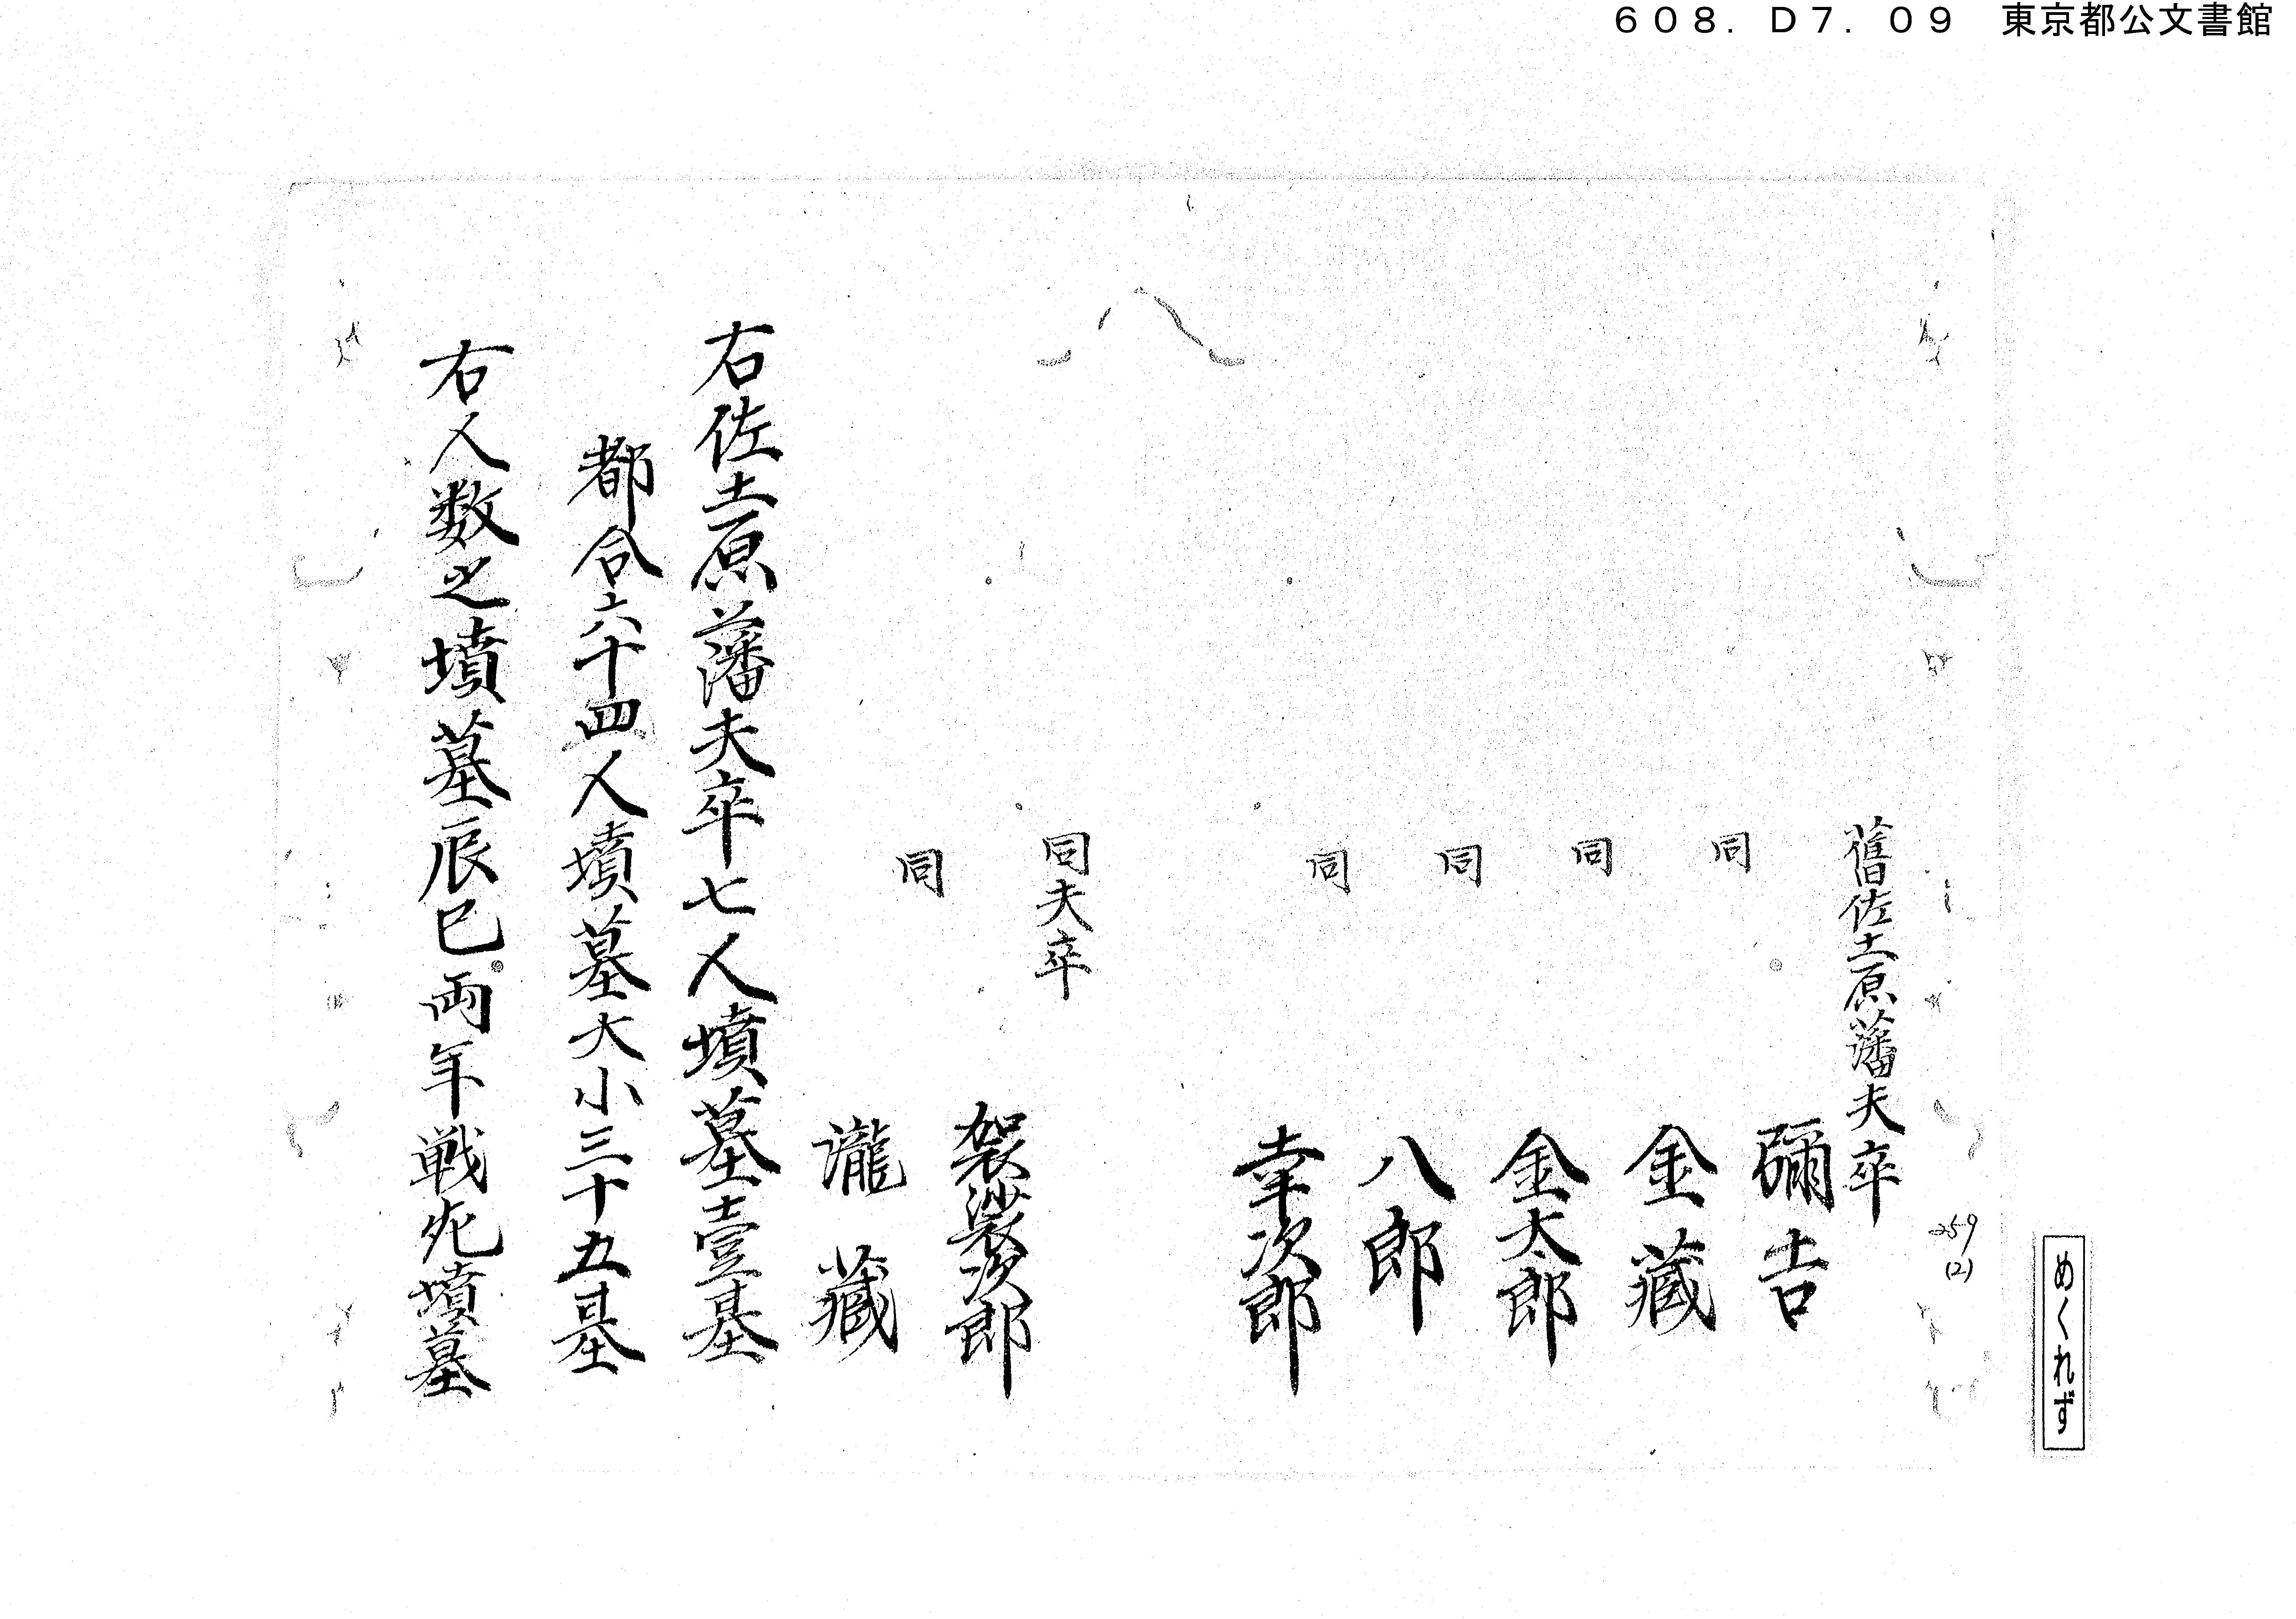 608. D7. 09 東京都公文書館
舊佐土原藩夫卒
彌吉
同
金藏
同
金太郎
同
八郎
同
幸次郎
同夫卒
袈裟次郎
同
瀧藏
右佐土原藩夫卒七人墳墓壹基
都合六十四人墳墓大小三十五基
右人数之墳墓辰巳両年戦死墳墓
259
(2)
めくれず